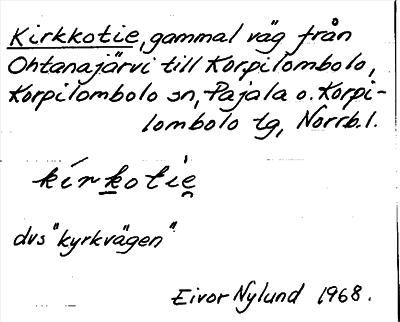 Kirkkotie, gammal väg från
Ohtanajärvi till Korpilombolo,
Korpilombolo sn, Pajala o. Korpi-
lombolo tg, Norrb. l.
kírk̲otie̯
dvs "kyrkvägen"
Eivor Nylund 1968.